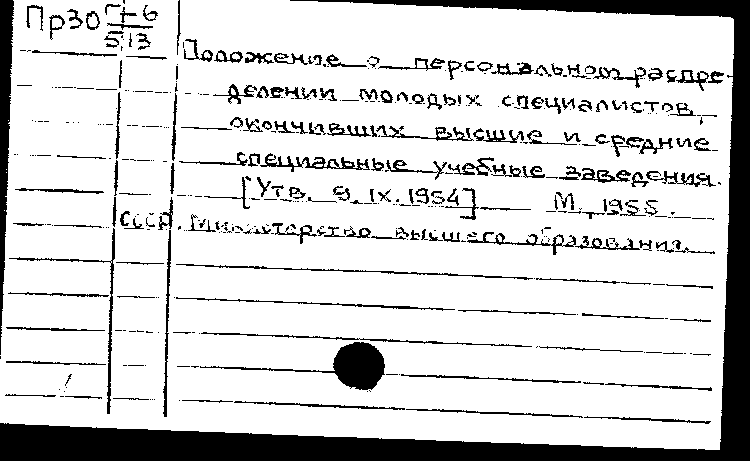 Пр30 П-6
5 13
Положение о персональном распре-
делении молодых специалистов,
окончивших высшие и средние
специальные учебные заведения.
[Утв. 9.IX.1954] М., 1955.
СССР. Министерство высшего образования.